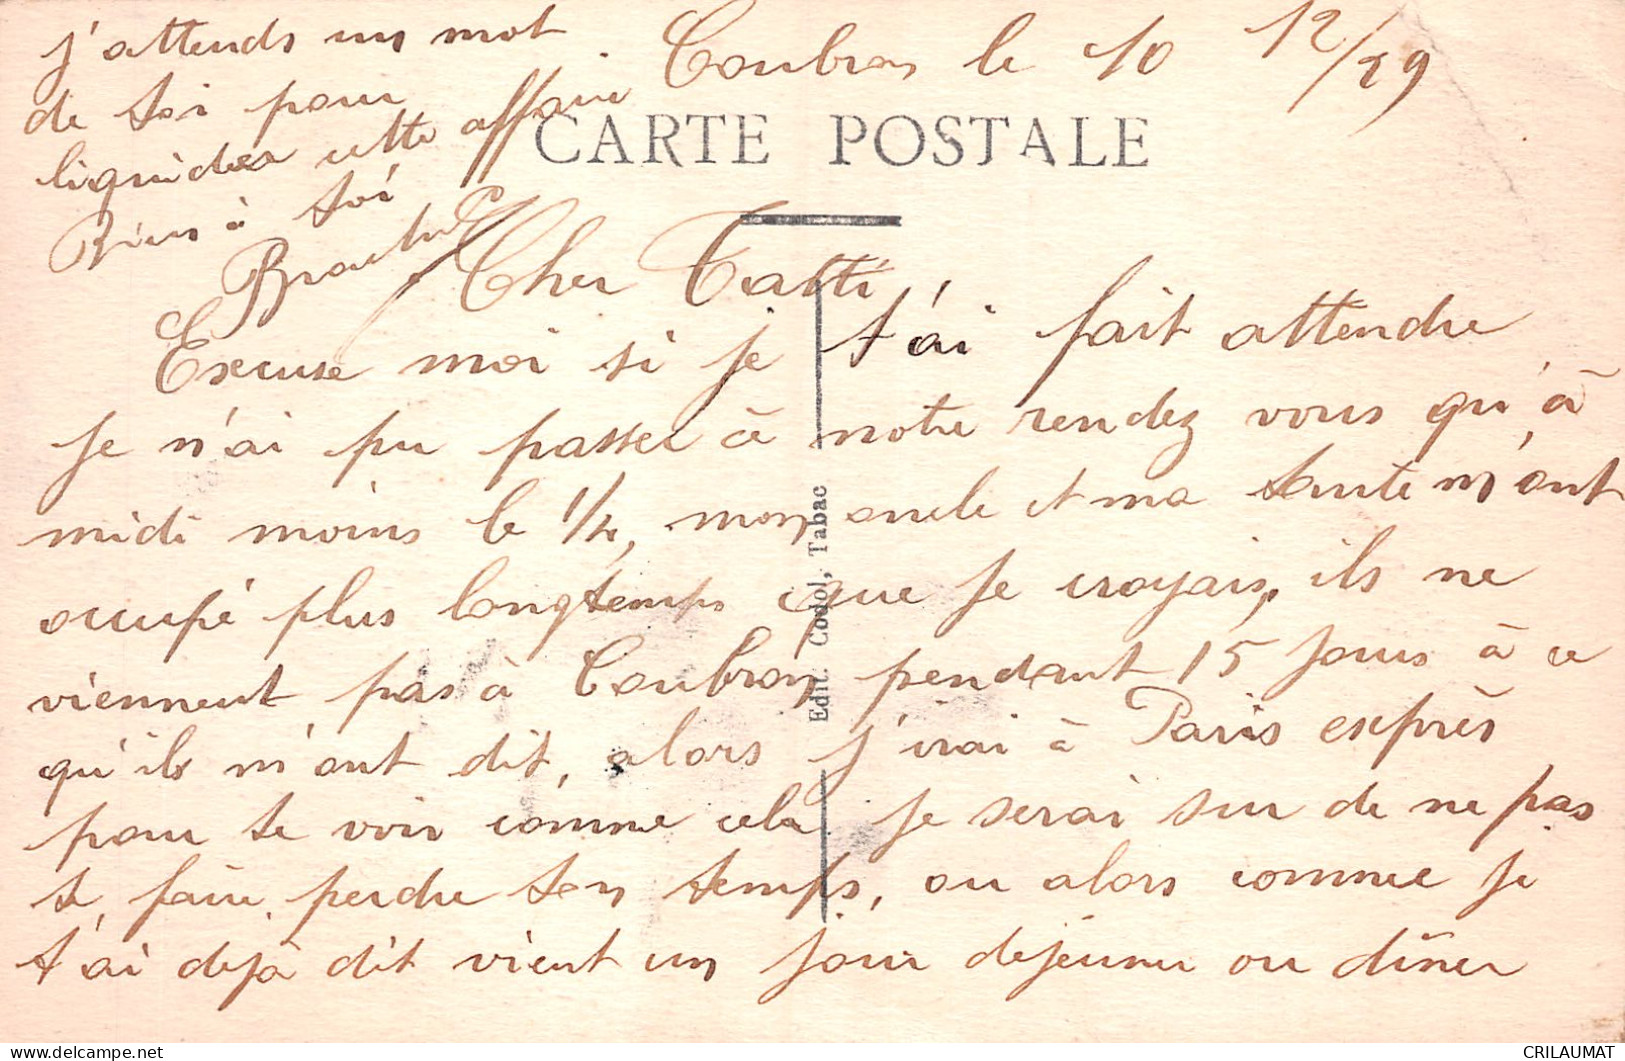 Coubron le 10 12/29
CARTE POSTALE
Cher Tatti
Excuse moi si je t'ai fait attendre
je n'ai pu passer à notre rendez vous qu'à
midi moins le 1/4, mon oncle et ma tante m'ont
occupé plus longtemps que je croyais, ils ne
viennent pas à Coubron pendant 15 jours à ce
qu'ils m'ont dit, alors j'irai à Paris exprès
pour te voir comme cela je serai sur de ne pas
te faire perdre ton temps, ou alors comme je
t'ai dejà dit vient un jour dejeuner ou dîner
j'attends un mot
de toi pour
liquider cette affaire
Bien à toi
Edit. Codol, Tabac
CRILAUMAT